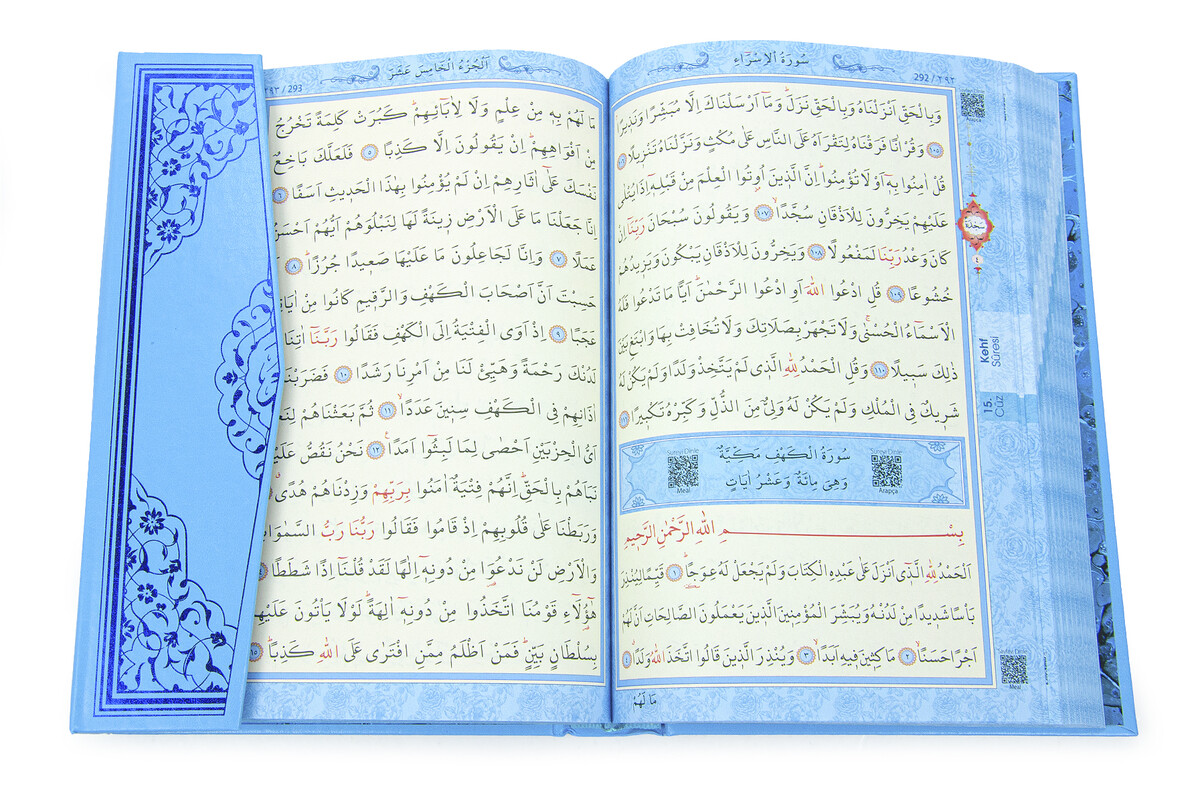 سُورَةُ الْاِسْرَاءِ
292 / ٢٩٢
وَبِالْحَقِّ اَنْزَلْنَاهُ وَبِالْحَقِّ نَزَلَ وَمَٓا اَرْسَلْنَاكَ اِلَّا مُبَشِّرًا وَنَذِيرًا
﴿١٠٥﴾ وَقُرْاٰنًا فَرَقْنَاهُ لِتَقْرَاَهُ عَلَى النَّاسِ عَلٰى مُكْثٍ وَنَزَّلْنَاهُ تَنْزِيلًا ﴿١٠٦﴾
قُلْ اٰمِنُوا بِهٖٓ اَوْ لَا تُؤْمِنُوا اِنَّ الَّذٖينَ اُو۫تُوا الْعِلْمَ مِنْ قَبْلِهٖٓ اِذَا يُتْلٰى
عَلَيْهِمْ يَخِرُّونَ لِلْاَذْقَانِ سُجَّدًا ﴿١٠٧﴾ وَيَقُولُونَ سُبْحَانَ رَبِّنَٓا اِنْ
كَانَ وَعْدُ رَبِّنَا لَمَفْعُولًا ﴿١٠٨﴾ وَيَخِرُّونَ لِلْاَذْقَانِ يَبْكُونَ وَيَزٖيدُهُمْ
خُشُوعًا ﴿١٠٩﴾ قُلِ ادْعُوا اللّٰهَ اَوِ ادْعُوا الرَّحْمٰنَ اَيًّا مَا تَدْعُوا فَلَهُ
الْاَسْمَٓاءُ الْحُسْنٰى وَلَا تَجْهَرْ بِصَلَاتِكَ وَلَا تُخَافِتْ بِهَا وَابْتَغِ بَيْنَ
ذٰلِكَ سَبٖيلًا ﴿١١٠﴾ وَقُلِ الْحَمْدُ لِلّٰهِ الَّذٖي لَمْ يَتَّخِذْ وَلَدًا وَلَمْ يَكُنْ لَهُ
شَرٖيكٌ فِي الْمُلْكِ وَلَمْ يَكُنْ لَهُ وَلِيٌّ مِنَ الذُّلِّ وَكَبِّرْهُ تَكْبٖيرًا ﴿١١١﴾
سُورَةُ الْكَهْفِ مَكِّيَّةٌ
وَهِيَ مِائَةٌ وَعَشْرُ اٰيَاتٍ
Sureyi Dinle
Meâl
Sureyi Dinle
Arapça
بِسْــــــمِ اللّٰهِ الرَّحْمٰنِ الرَّحٖيمِ
اَلْحَمْدُ لِلّٰهِ الَّذٖٓي اَنْزَلَ عَلٰى عَبْدِهِ الْكِتَابَ وَلَمْ يَجْعَلْ لَهُ عِوَجًا ﴿١﴾ قَيِّمًا لِيُنْذِرَ
بَاْسًا شَدٖيدًا مِنْ لَدُنْهُ وَيُبَشِّرَ الْمُؤْمِنٖينَ الَّذٖينَ يَعْمَلُونَ الصَّالِحَاتِ اَنَّ لَهُمْ
اَجْرًا حَسَنًا ﴿٢﴾ مَاكِثٖينَ فٖيهِ اَبَدًا ﴿٣﴾ وَيُنْذِرَ الَّذٖينَ قَالُوا اتَّخَذَ اللّٰهُ وَلَدًا ﴿٤﴾
مَا لَهُمْ
Arapça
سَجْدَة
٤
Kehf
Sûresi
15.
Cüz
Sayfayı Dinle
Meâl
اَلْجُزْءُ الْخَامِسَ عَشَرَ
٢٩٣ / 293
مَا لَهُمْ بِهٖ مِنْ عِلْمٍ وَلَا لِاٰبَٓائِهِمْ كَبُرَتْ كَلِمَةً تَخْرُجُ
مِنْ اَفْوَاهِهِمْ اِنْ يَقُولُونَ اِلَّا كَذِبًا ﴿٥﴾ فَلَعَلَّكَ بَاخِعٌ
نَفْسَكَ عَلٰٓى اٰثَارِهِمْ اِنْ لَمْ يُؤْمِنُوا بِهٰذَا الْحَدٖيثِ اَسَفًا ﴿٦﴾
اِنَّا جَعَلْنَا مَا عَلَى الْاَرْضِ زٖينَةً لَهَا لِنَبْلُوَهُمْ اَيُّهُمْ اَحْسَنُ
عَمَلًا ﴿٧﴾ وَاِنَّا لَجَاعِلُونَ مَا عَلَيْهَا صَعٖيدًا جُرُزًا ﴿٨﴾
حَسِبْتَ اَنَّ اَصْحَابَ الْكَهْفِ وَالرَّقٖيمِ كَانُوا مِنْ اٰيَاتِنَا
عَجَبًا ﴿٩﴾ اِذْ اَوَى الْفِتْيَةُ اِلَى الْكَهْفِ فَقَالُوا رَبَّنَٓا اٰتِنَا
لَدُنْكَ رَحْمَةً وَهَيِّئْ لَنَا مِنْ اَمْرِنَا رَشَدًا ﴿١٠﴾ فَضَرَبْنَا
اٰذَانِهِمْ فِي الْكَهْفِ سِنٖينَ عَدَدًا ﴿١١﴾ ثُمَّ بَعَثْنَاهُمْ لِنَعْلَمَ
اَيُّ الْحِزْبَيْنِ اَحْصٰى لِمَا لَبِثُٓوا اَمَدًا ﴿١٢﴾ نَحْنُ نَقُصُّ عَلَيْكَ
نَبَاَهُمْ بِالْحَقِّ اِنَّهُمْ فِتْيَةٌ اٰمَنُوا بِرَبِّهِمْ وَزِدْنَاهُمْ هُدًى
وَرَبَطْنَا عَلٰى قُلُوبِهِمْ اِذْ قَامُوا فَقَالُوا رَبُّنَا رَبُّ السَّمٰوَاتِ
وَالْاَرْضِ لَنْ نَدْعُوَا مِنْ دُونِهٖٓ اِلٰهًا لَقَدْ قُلْنَٓا اِذًا شَطَطًا
هٰٓؤُ۬لَٓاءِ قَوْمُنَا اتَّخَذُوا مِنْ دُونِهٖٓ اٰلِهَةً لَوْلَا يَاْتُونَ عَلَيْهِمْ
بِسُلْطَانٍ بَيِّنٍ فَمَنْ اَظْلَمُ مِمَّنِ افْتَرٰى عَلَى اللّٰهِ كَذِبًا ﴿١٥﴾